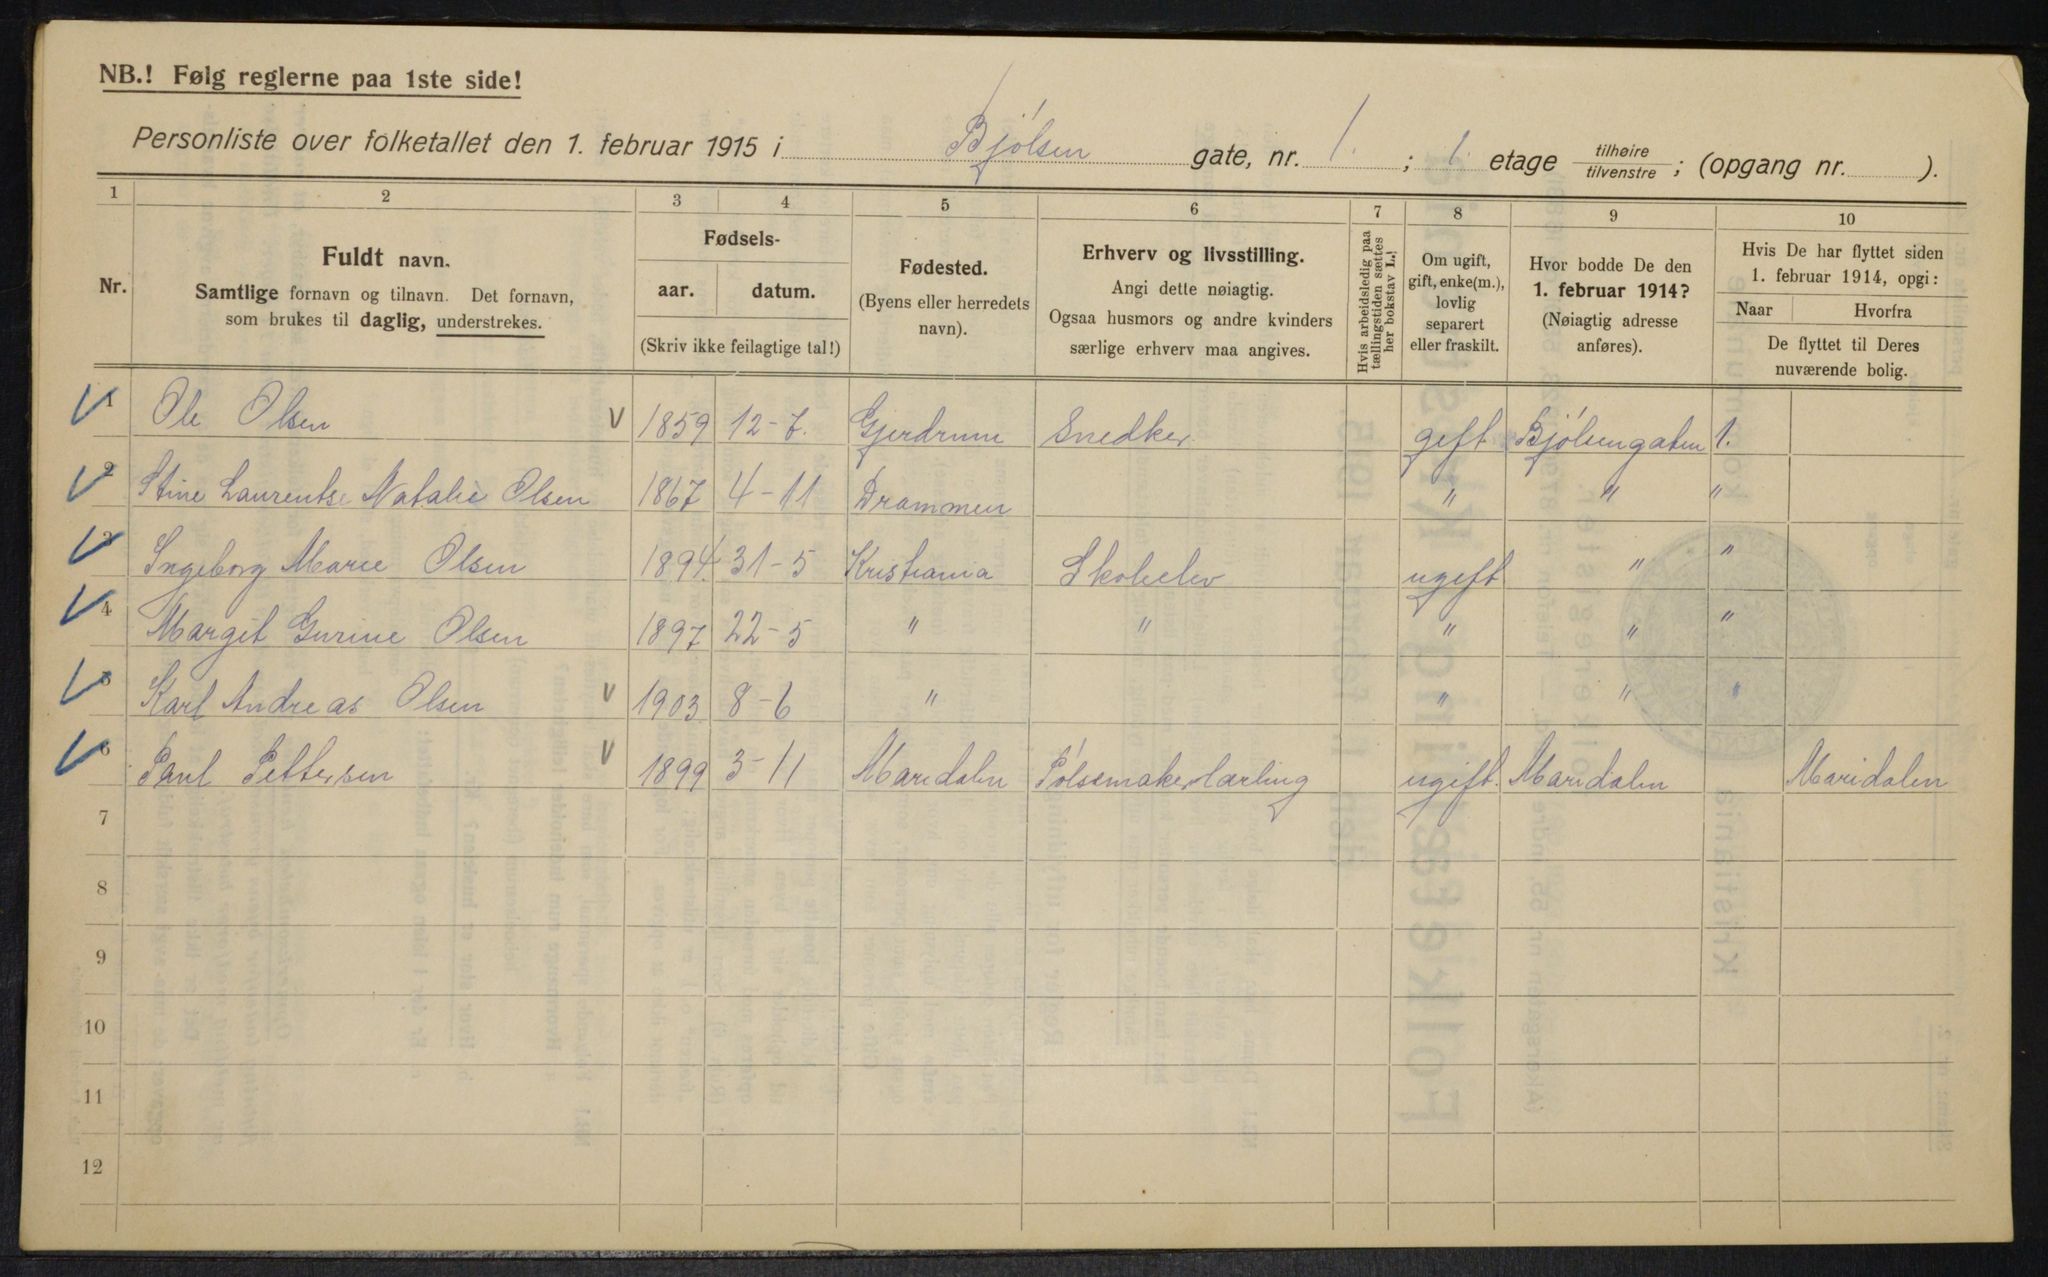 NB.! Følg reglerne paa 1ste side!
Personliste over folketallet den 1. februar 1915 i Bjølsen gate, nr. 1. ; 1. etage tilhøire tilvenstre ; (opgang nr. ).
1 2 3 4 5 6 7 8 9 10
Nr.
Fuldt navn.
Samtlige fornavn og tilnavn. Det fornavn,
som brukes til daglig, understrekes.
Fødsels-
aar. datum.
(Skriv ikke feilagtige tal!)
Fødested.
(Byens eller herredets
navn).
Erhverv og livsstilling.
Angi dette nøiagtig.
Ogsaa husmors og andre kvinders
særlige erhverv maa angives.
Hvis arbeidsledig paa
tællingstiden sættes
her bokstav L.!
Om ugift,
gift, enke(m.),
lovlig
separert
eller fraskilt.
Hvor bodde De den
1. februar 1914?
(Nøiagtig adresse
anføres).
Hvis De har flyttet siden
1. februar 1914, opgi:
Naar Hvorfra
De flyttet til Deres
nuværende bolig.
1 Ole Olsen 1859 12-7. Gjerdrum Snedker gift Bjølsengaten 1.
2 Stine Laurentse Natalie Olsen 1867 4-11 Drammen " " "
3 Ingeborg Marie Olsen 1894. 31-5 Kristiania Skoleelev ugift " "
4 Margit Gurine Olsen 1897 22-5 " " " " "
5 Karl Andreas Olsen 1903 8-6 " " " "
6 Paul Pettersen 1899 3-11 Maridalen Pølsemakerlærling ugift. Maridalen Maridalen
7
8
9
10
11
12